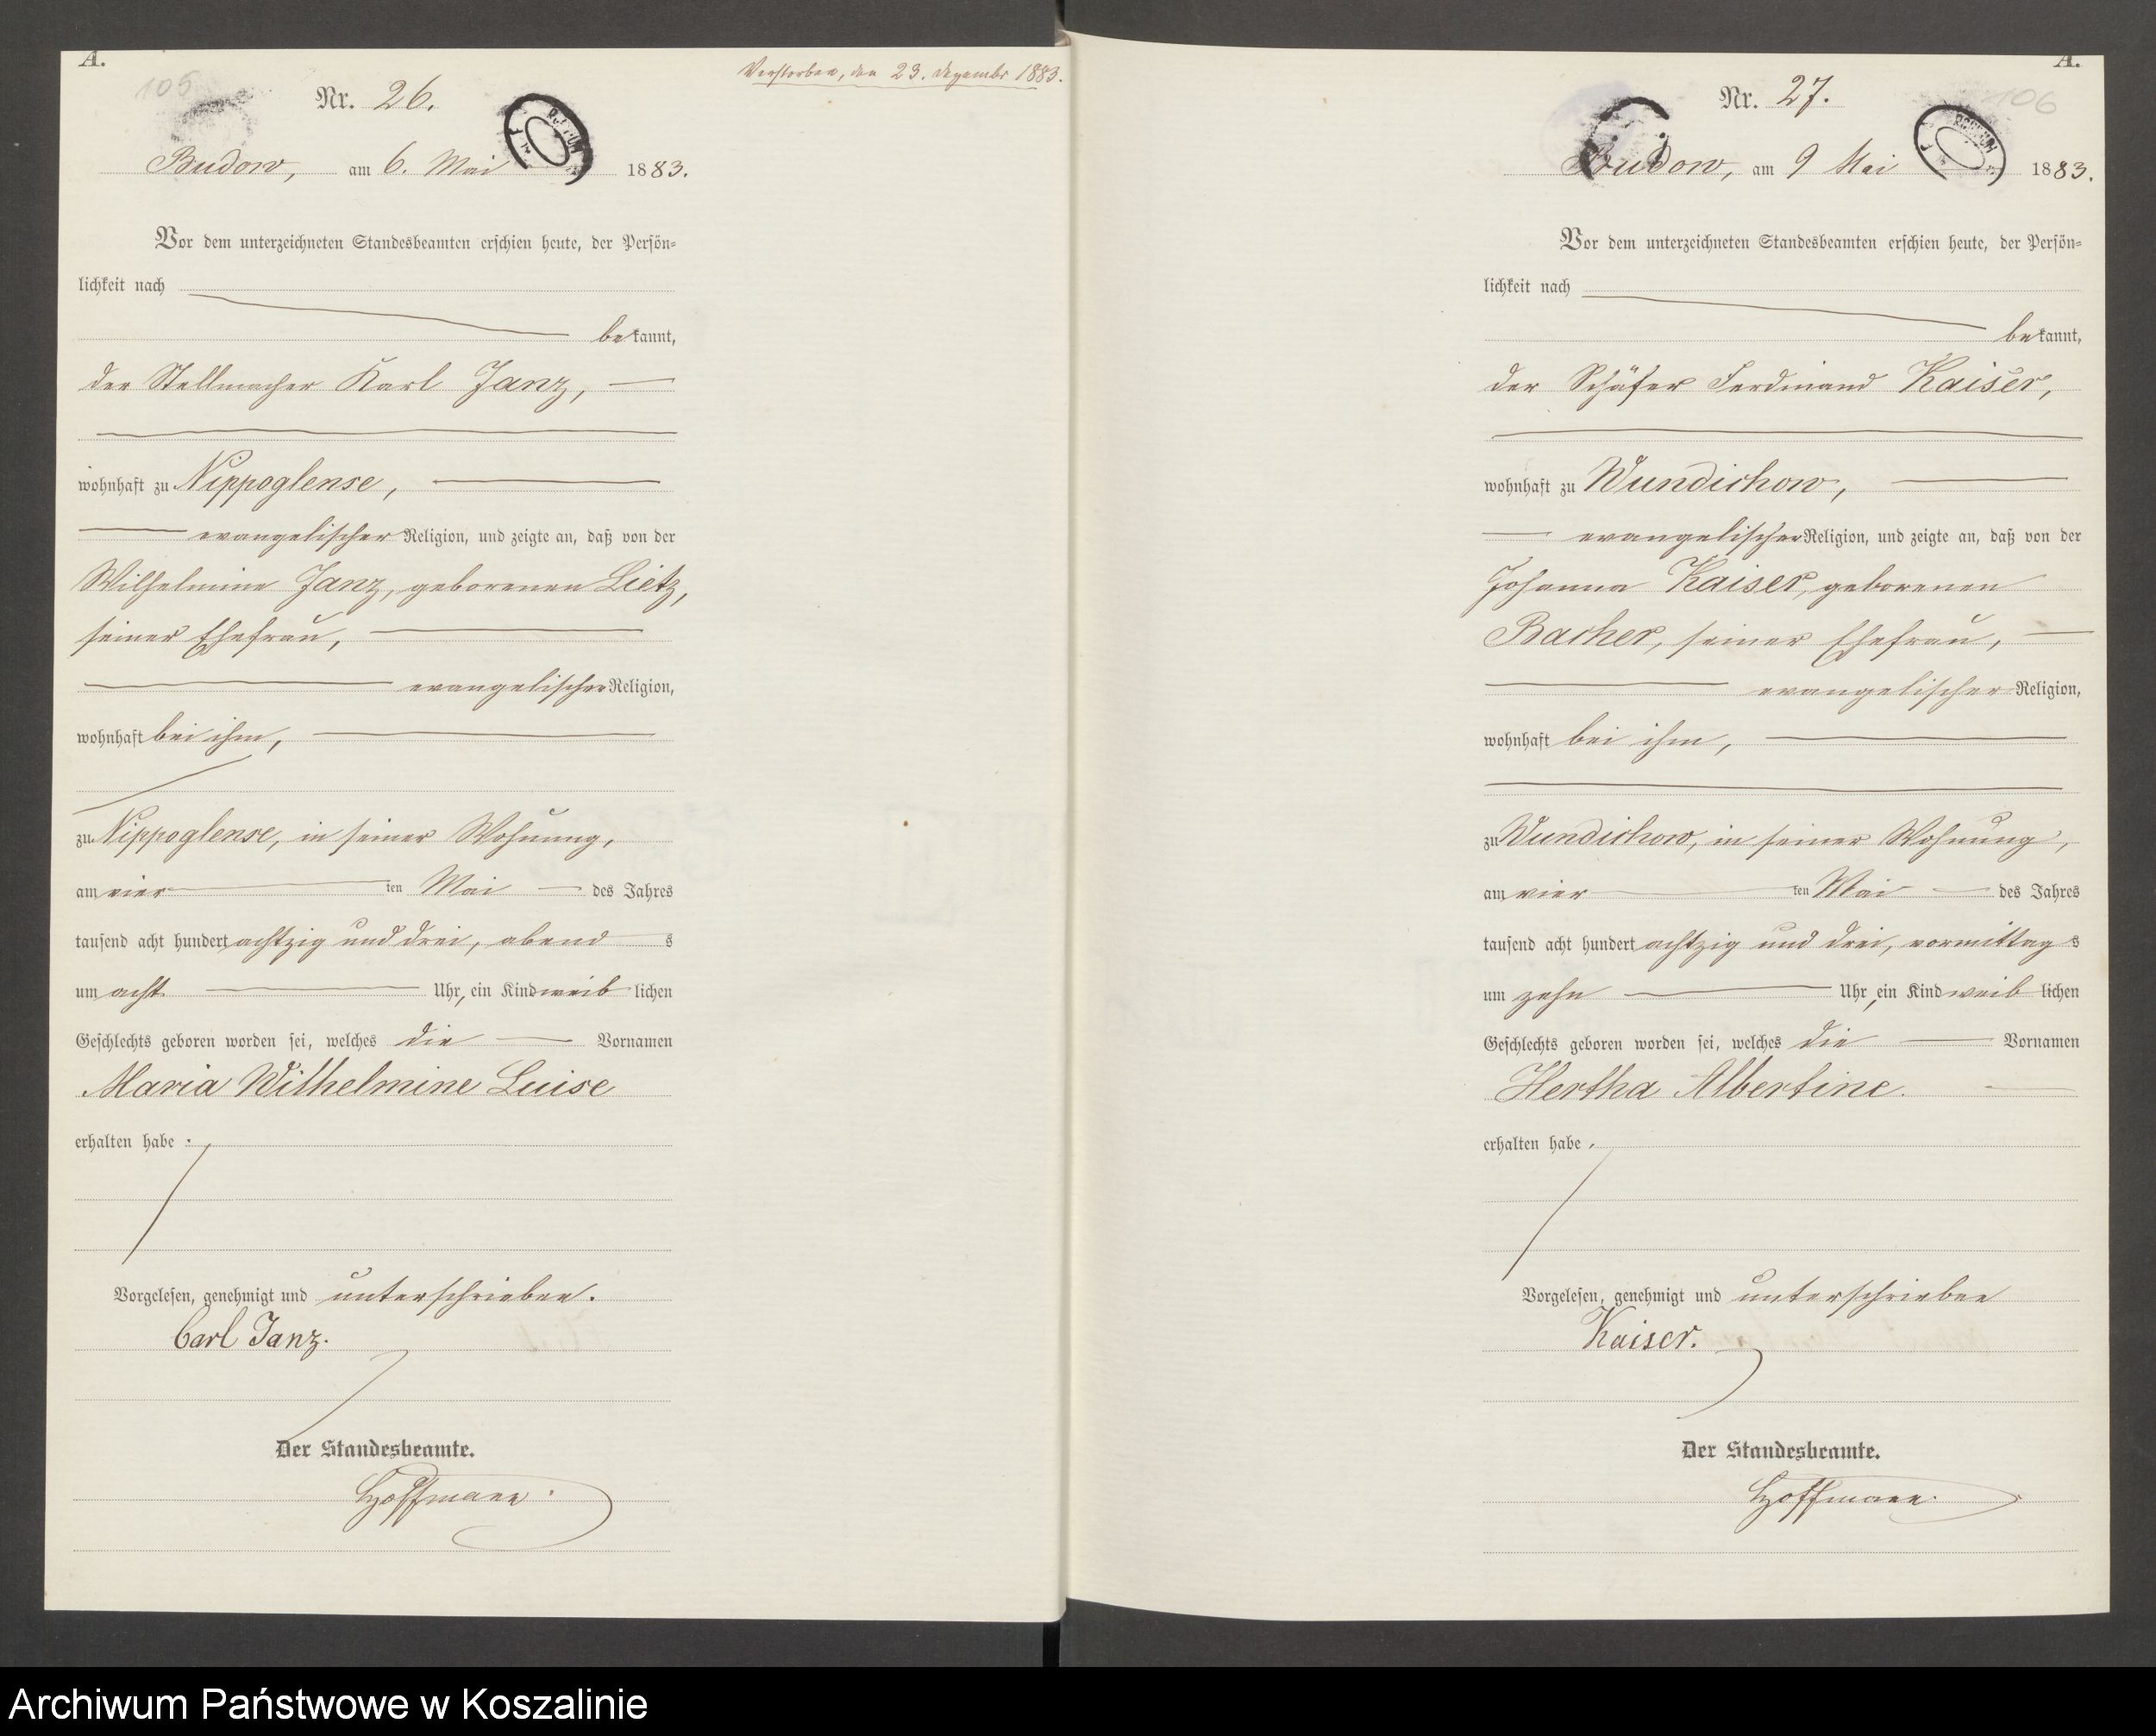 A.
105
Nr. 26.
Verstorben, den 23. Dezember 1883.
Budow, am 6. Mai 1883.
Vor dem unterzeichneten Standesbeamten erschien heute, der Persön=
lichkeit nach
bekannt,
der Stellmacher Karl Janz,
wohnhaft zu Nippoglense,
evangelischer Religion, und zeigte an, daß von der
Wilhelmine Janz, geborenen Lietz,
seiner Ehefrau,
evangelischer Religion,
wohnhaft bei ihm,
zu Nippoglense, in seiner Wohnung,
am vier ten Mai des Jahres
tausend acht hundert achtzig und drei, abend s
um acht Uhr, ein Kind weiblichen
Geschlechts geboren worden sei, welches die Vornamen
Maria Wilhelmine Luise
erhalten habe.
Vorgelesen, genehmigt und unterschrieben.
Carl Janz.
Der Standesbeamte.
Hoffmann.
A.
106
Nr. 27.
Budow, am 9 Mai 1883.
Vor dem unterzeichneten Standesbeamten erschien heute, der Persön=
lichkeit nach
bekannt,
der Schäfer Ferdinand Kaiser,
wohnhaft zu Wundichow,
evangelischer Religion, und zeigte an, daß von der
Johanna Kaiser, geborenen
Bacher, seiner Ehefrau,
evangelischer Religion,
wohnhaft bei ihm,
zu Wundichow, in seiner Wohnung,
am vier ten Mai des Jahres
tausend acht hundert achtzig und drei, vormittags
um zehn Uhr, ein Kind weiblichen
Geschlechts geboren worden sei, welches die Vornamen
Hertha Albertine.
erhalten habe.
Vorgelesen, genehmigt und unterschrieben
Kaiser.
Der Standesbeamte.
Hoffmann.
Archiwum Państwowe w Koszalinie